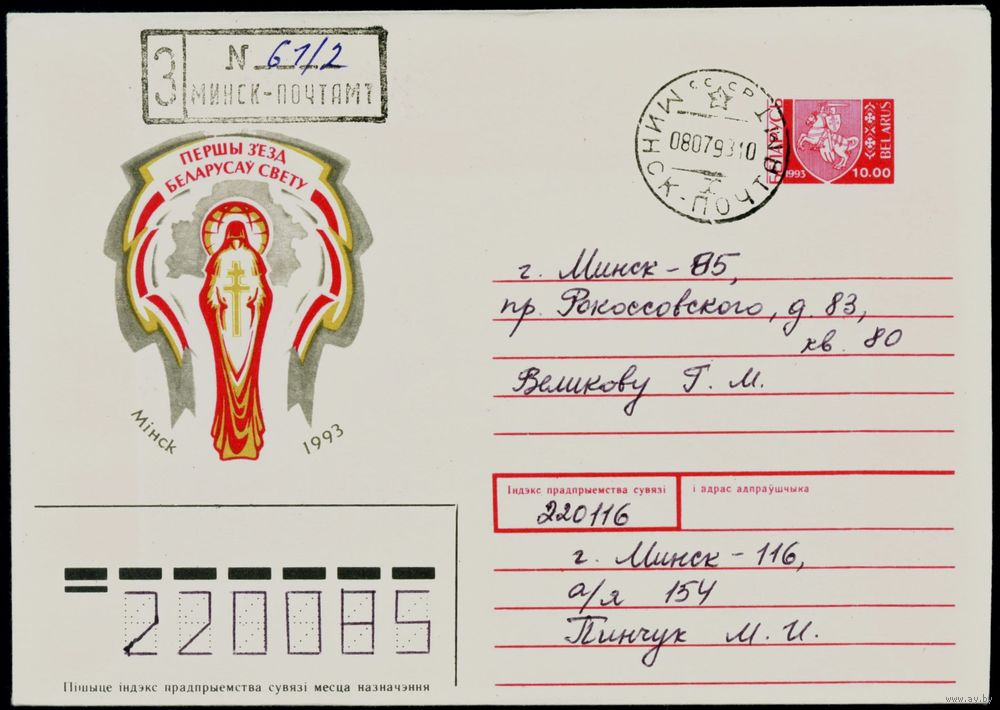 З
N 61/2
МИНСК-ПОЧТАМТ
ПЕРШЫ З'ЕЗД
БЕЛАРУСАЎ СВЕТУ
Мінск
1993
СССР
МИНСК-ПОЧТАМТ
08079310
БЕЛАРУСЬ
BELARUS
1993
10.00
г. Минск - 85,
пр. Рокоссовского, д. 83,
кв. 80
Великову Г. М.
Індэкс прадпрыемства сувязі і адрас адпраўшчыка
220116
г. Минск - 116,
а/я 154
Пинчук М. И.
220085
Пішыце індэкс прадпрыемства сувязі месца назначэння
www.ay.by